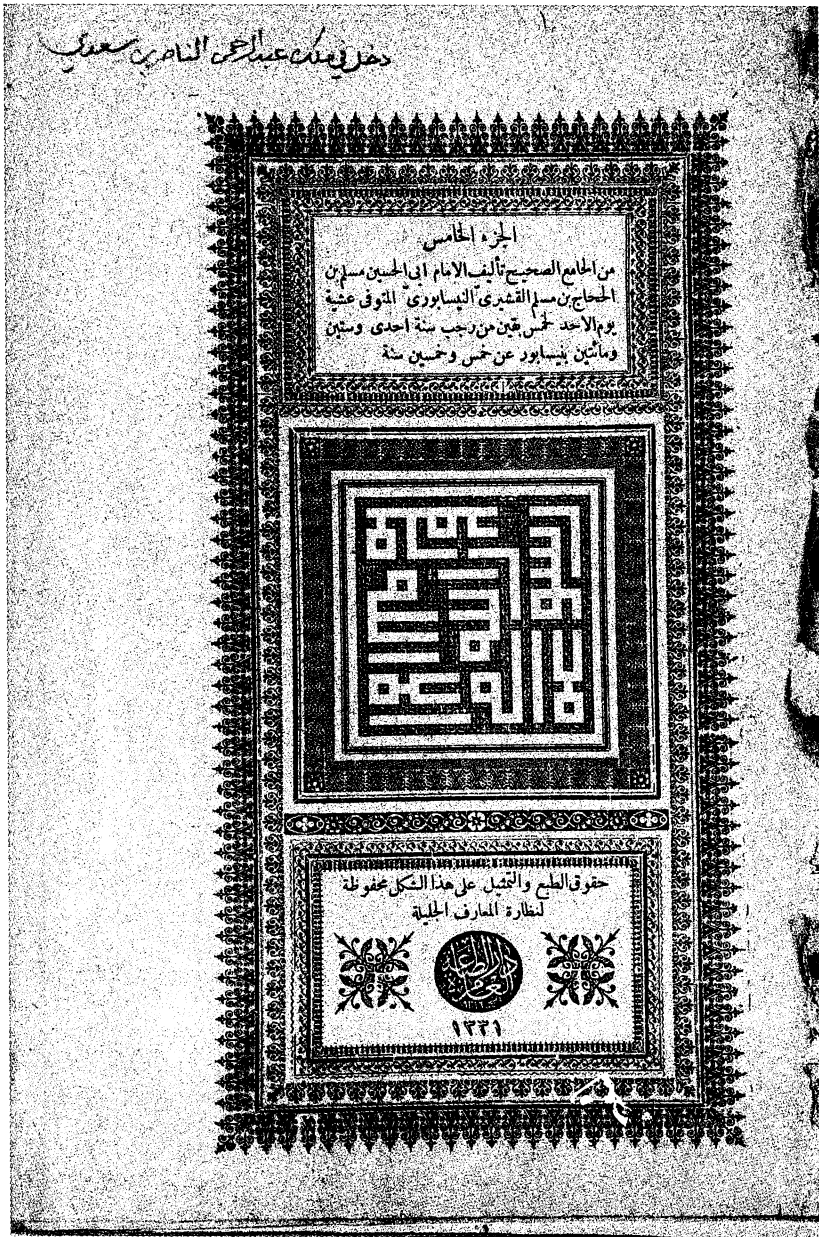 ١
دخل في ملك عبدالرحمن الناصر بن سعدي
الجزء الخامس
من الجامع الصحيح تأليف الامام ابى الحسين مسلم بن
الحجاج بن مسلم القشيرى النيسابورى المتوفى عشية
يوم الاحد لخمس بقين من رجب سنة احدى وستين
ومائتين بنيسابور عن خمس وخمسين سنة
حقوق الطبع والتمثيل على هذا الشكل محفوظة
لنظارة المعارف الجليلة
دار الطباعة العامرة
١٣٣١